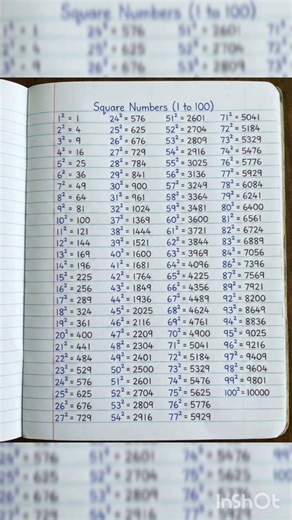 Square Numbers (1 to 100)
1² = 1 24² = 576 51² = 2601 71²
2² = 4 25² = 625 52² = 2704 72²
3² = 9 26² = 676 53² = 2809 73²
Square Numbers (1 to 100)
1² = 1 24² = 576 51² = 2601 71² = 5041
2² = 4 25² = 625 52² = 2704 72² = 5184
3² = 9 26² = 676 53² = 2809 73² = 5329
4² = 16 27² = 729 54² = 2916 74² = 5476
5² = 25 28² = 784 55² = 3025 76² = 5776
6² = 36 29² = 841 56² = 3136 77² = 5929
7² = 49 30² = 900 57² = 3249 78² = 6084
8² = 64 31² = 961 58² = 3364 79² = 6241
9² = 81 32² = 1024 59² = 3481 80² = 6400
10² = 100 37² = 1369 60² = 3600 81² = 6561
11² = 121 38² = 1444 61² = 3721 82² = 6724
12² = 144 39² = 1521 62² = 3844 83² = 6889
13² = 169 40² = 1600 63² = 3969 84² = 7056
14² = 196 41² = 1681 64² = 4096 86² = 7396
15² = 225 42² = 1764 65² = 4225 87² = 7569
16² = 256 43² = 1849 66² = 4356 89² = 7921
17² = 289 44² = 1936 67² = 4489 92² = 8200
18² = 324 45² = 2025 68² = 4624 93² = 8649
19² = 361 46² = 2116 69² = 4761 94² = 8836
20² = 400 47² = 2209 70² = 4900 95² = 9025
21² = 441 48² = 2304 71² = 5041 96² = 9216
22² = 484 49² = 2401 72² = 5184 97² = 9409
23² = 529 50² = 2500 73² = 5329 98² = 9604
24² = 576 51² = 2601 74² = 5476 99² = 9801
25² = 625 52² = 2704 75² = 5625 100² = 10000
26² = 676 53² = 2809 76² = 5776
27² = 729 54² = 2916 77² = 5929
24² = 576 51² = 2601 74² = 5476
25² = 625 52² = 2704 75² = 5625 100
26² = 676 53² = 2809
InShot